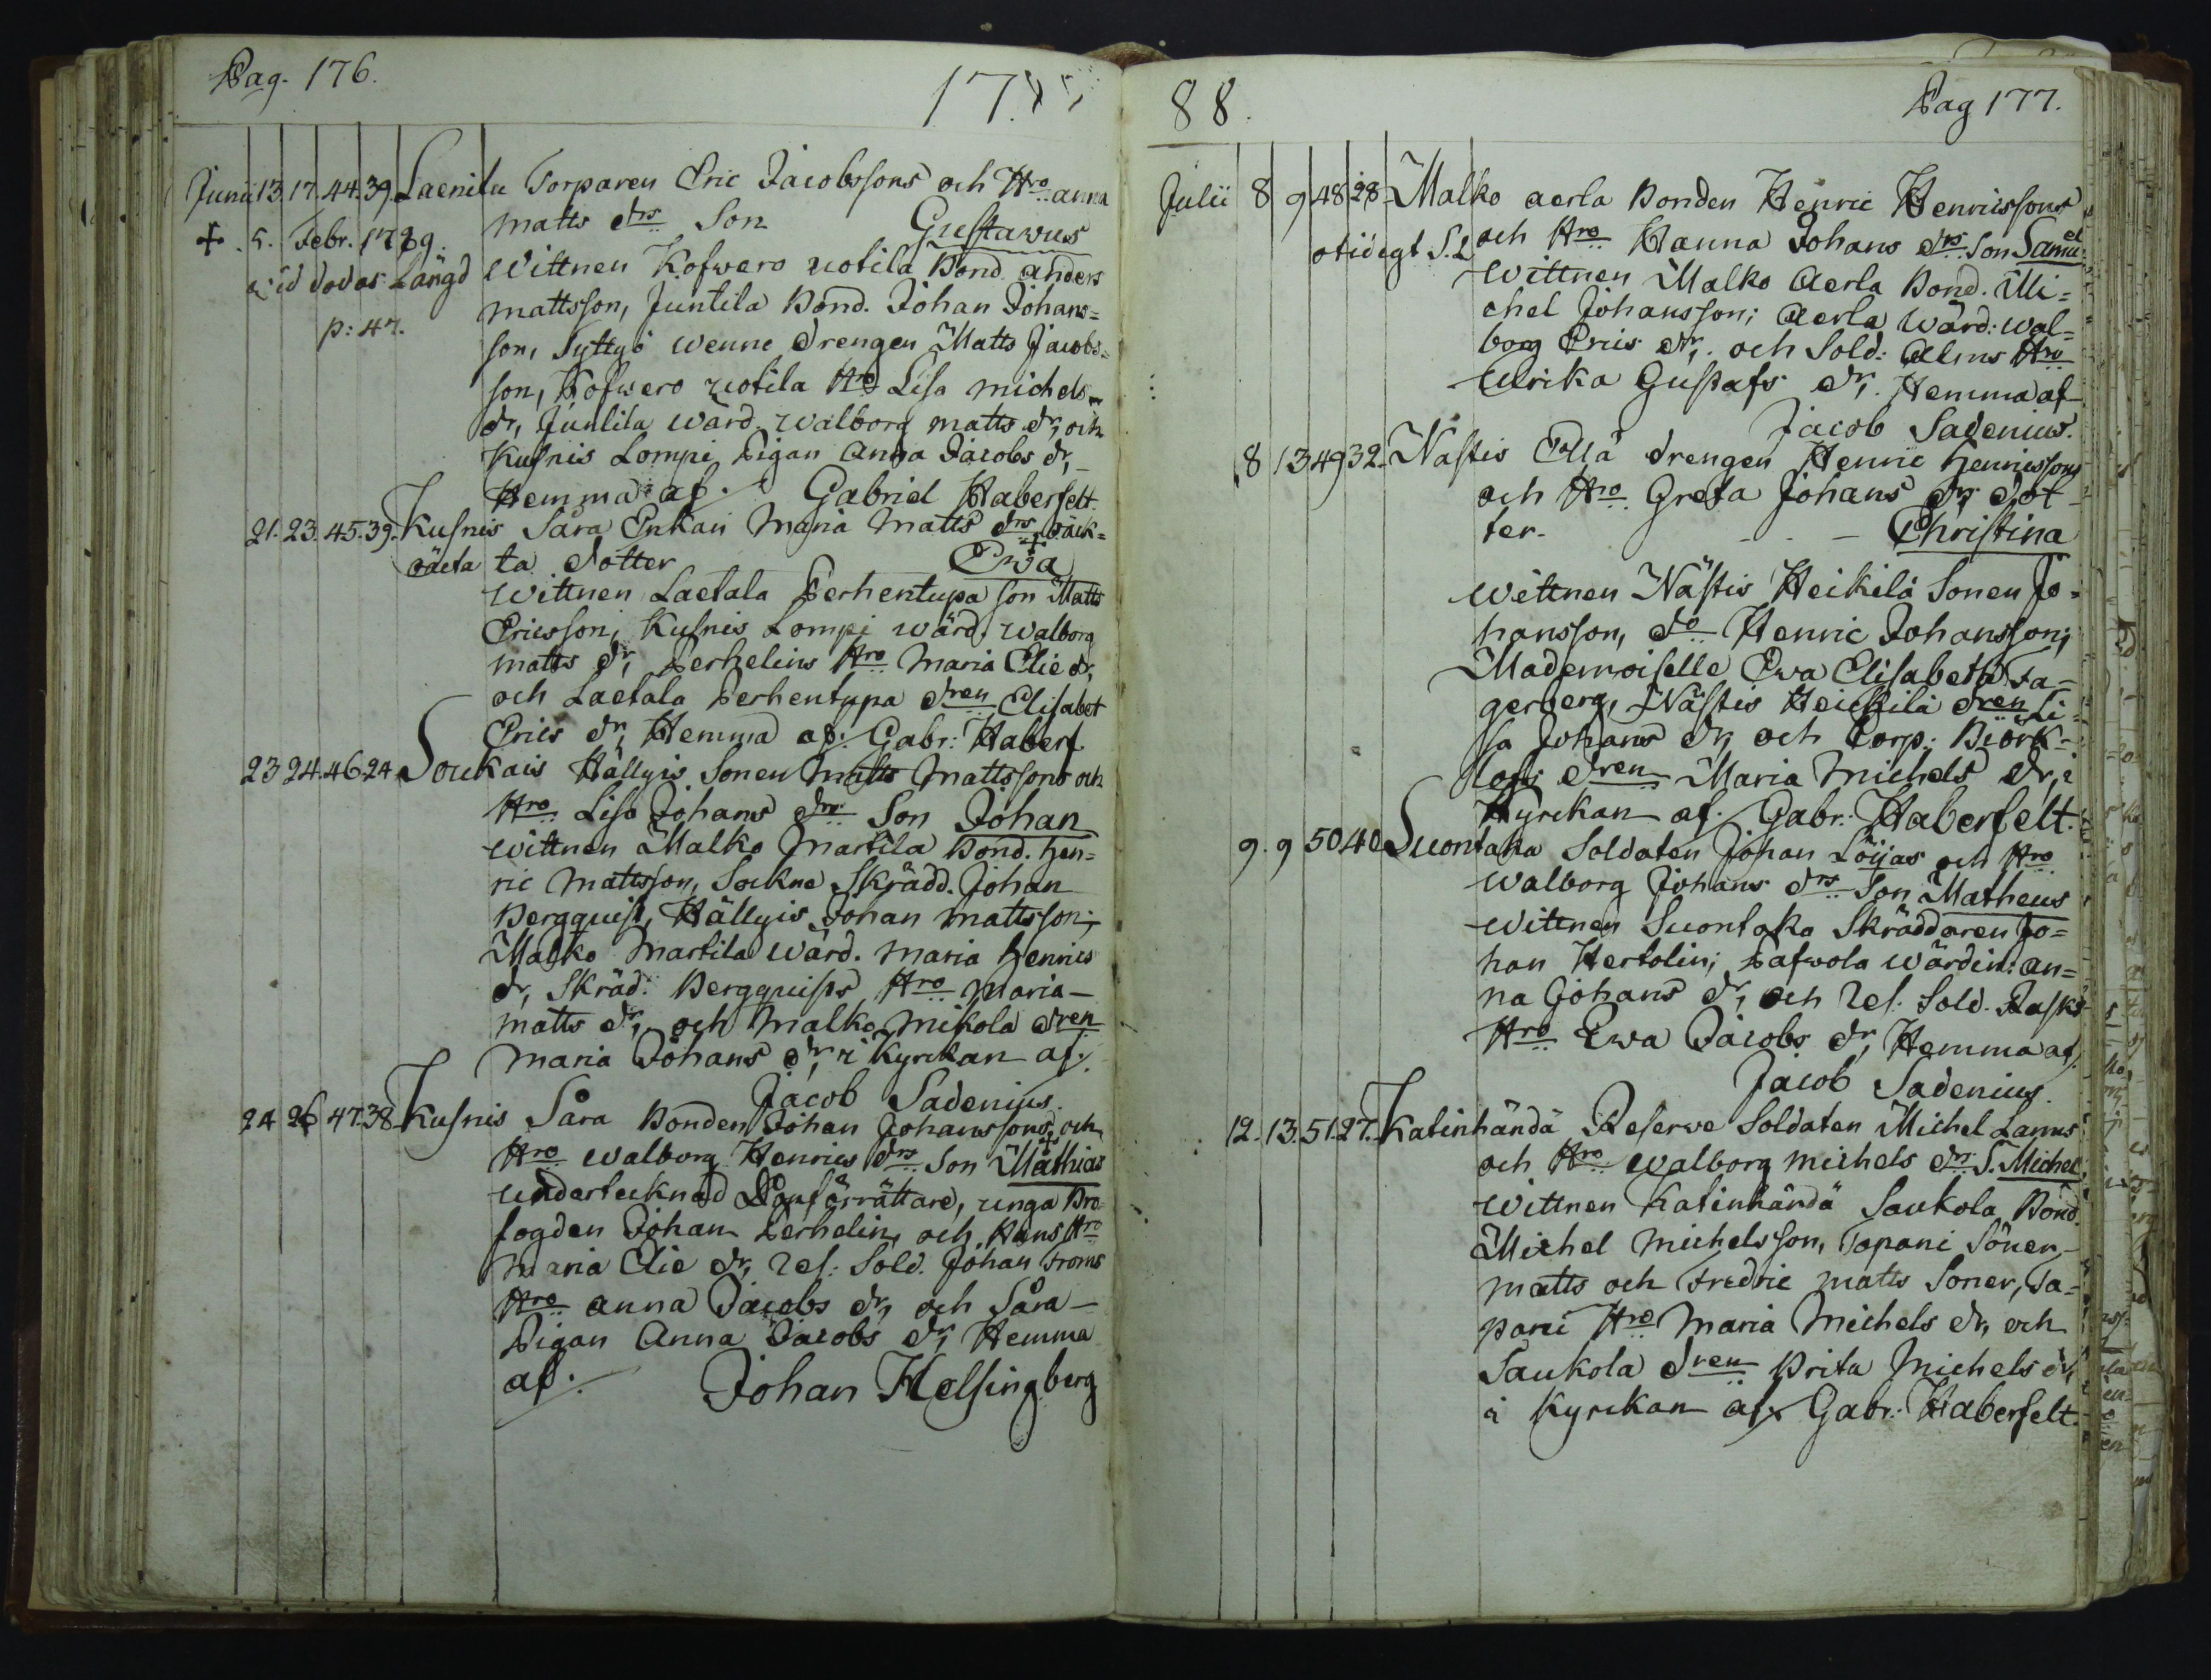 Pag. 176.
17
Junii 13. 17. 44. 39. Laenilu Torparen Eric Jacobssons och Hro anna
matts drs Son Gustavus
+ . 5. Febr. 1789.
vid dödas Längd
p: 47.
Wittnen Kofwero uotila Bond. anders
mattsson, Juntila Bond. Johan Johans=
son, Syttyö wenne drengen Matts Jacobs=
son, Kofwero uotila Hro Lisa michels
dr, Juntila wärd. walborg matts dr, och
Kusnis Lompi Pigan Anna Jacobs dr,
Hemma af. Gabriel Haberfelt.
21. 23. 45. 39. Kusnis Såra Enkan Maria Matts drs oäck=
oäcta ta dotter Ewa
Wittnen Laetala Perhentupa son Matts
Ericsson, Kusnis Lompi wärd. Walborg
matts dr, Perhelins Hro Maria Elie dr,
och Laetala Perhentupa dren Elisabet
Erics dr, Hemma af. Gabr: Haberf
23 24. 46. 24 Soukais Hällyis Sonen Matts Mattssons och
Hro Lisa Johans drs Son Johan
Wittnen Malko Martila Bond. Hen=
ric Mattsson, Sockne Skrädd. Johan
Bergquist, Hällyis Johan mattsson;
Malko Martila Wärd. maria Henrics
dr, Skräd: Bergquists Hro Maria
matts dr, och Malko Mikola dren
Maria Johans dr, i Kyrckan af.
Jacob Sadenius.
24 26 47. 38 Kusnis Såra Bonden Johan Johanssons och
Hro Walborg Henrics drs Son Mathias
Undertecknad Döpförrättare, unga Bro
fogden Johan Perhelin, och Hans Hro
Maria Elie dr, ref: Sold. Johan Froms
Hro anna Jacobs dr, och Såra
Pigan Anna Jacobs dr, Hemma
af. Johan Helsingberg
88.
Pag 177.
Julii 8 9 48 28 Malko aerla Bonden Henric Henricssons
otidigt S. L och Hro Hanna Johans drs Son Samuel
Wittnen Malko Aerla Bond. Mi=
chel Johansson; Aerla Wärd: Wal=
borg Erics dr, och Sold: Alms Hro
Ulrika Gustafs dr, Hemma af
Jacob Sadenius.
8 13 49 32. Nästis Ellä drengen Henric Henricssons
och Hro Greta Johans drs dot
ter. - - - Christina
Wittnen Nästis Heikilä Sonen Jo=
hansson, do Henric Johansson;
Mademoiselle Ewa Elisabeth Fa=
gerberg, Nästis Heickilä dren Li=
sa Johans dr, och Corp: Biörk=
lofs dren Maria Michels dr, i
Kyrckan af. Gabr: Haberfelt.
9. 9 50 40 Suontaka Soldaten Johan Löijas och Hro
Walborg Johans drs Son Matheus
Wittnen Suontaka Skräddaren Jo=
han Hertolin; Pafwola Wärdin: An=
na Johans dr, och ref. Sold. Rasks
Hro Ewa Jacobs dr, Hemma af.
Jacob Sadenius.
12. 13. 51. 27. Katinhändä Reserve Soldaten Michel Lanns
och Hro Walborg michels drs S. Michel
Wittnen Katinhändä Saukola Bond.
Michel Michelsson, Tapani Söner
matts och Fredric matts Soner, Ta=
pani Hro Maria Michels dr, och
Saukola dren Brita Michels dr,
i Kyrckan af. Gabr: Haberfelt.